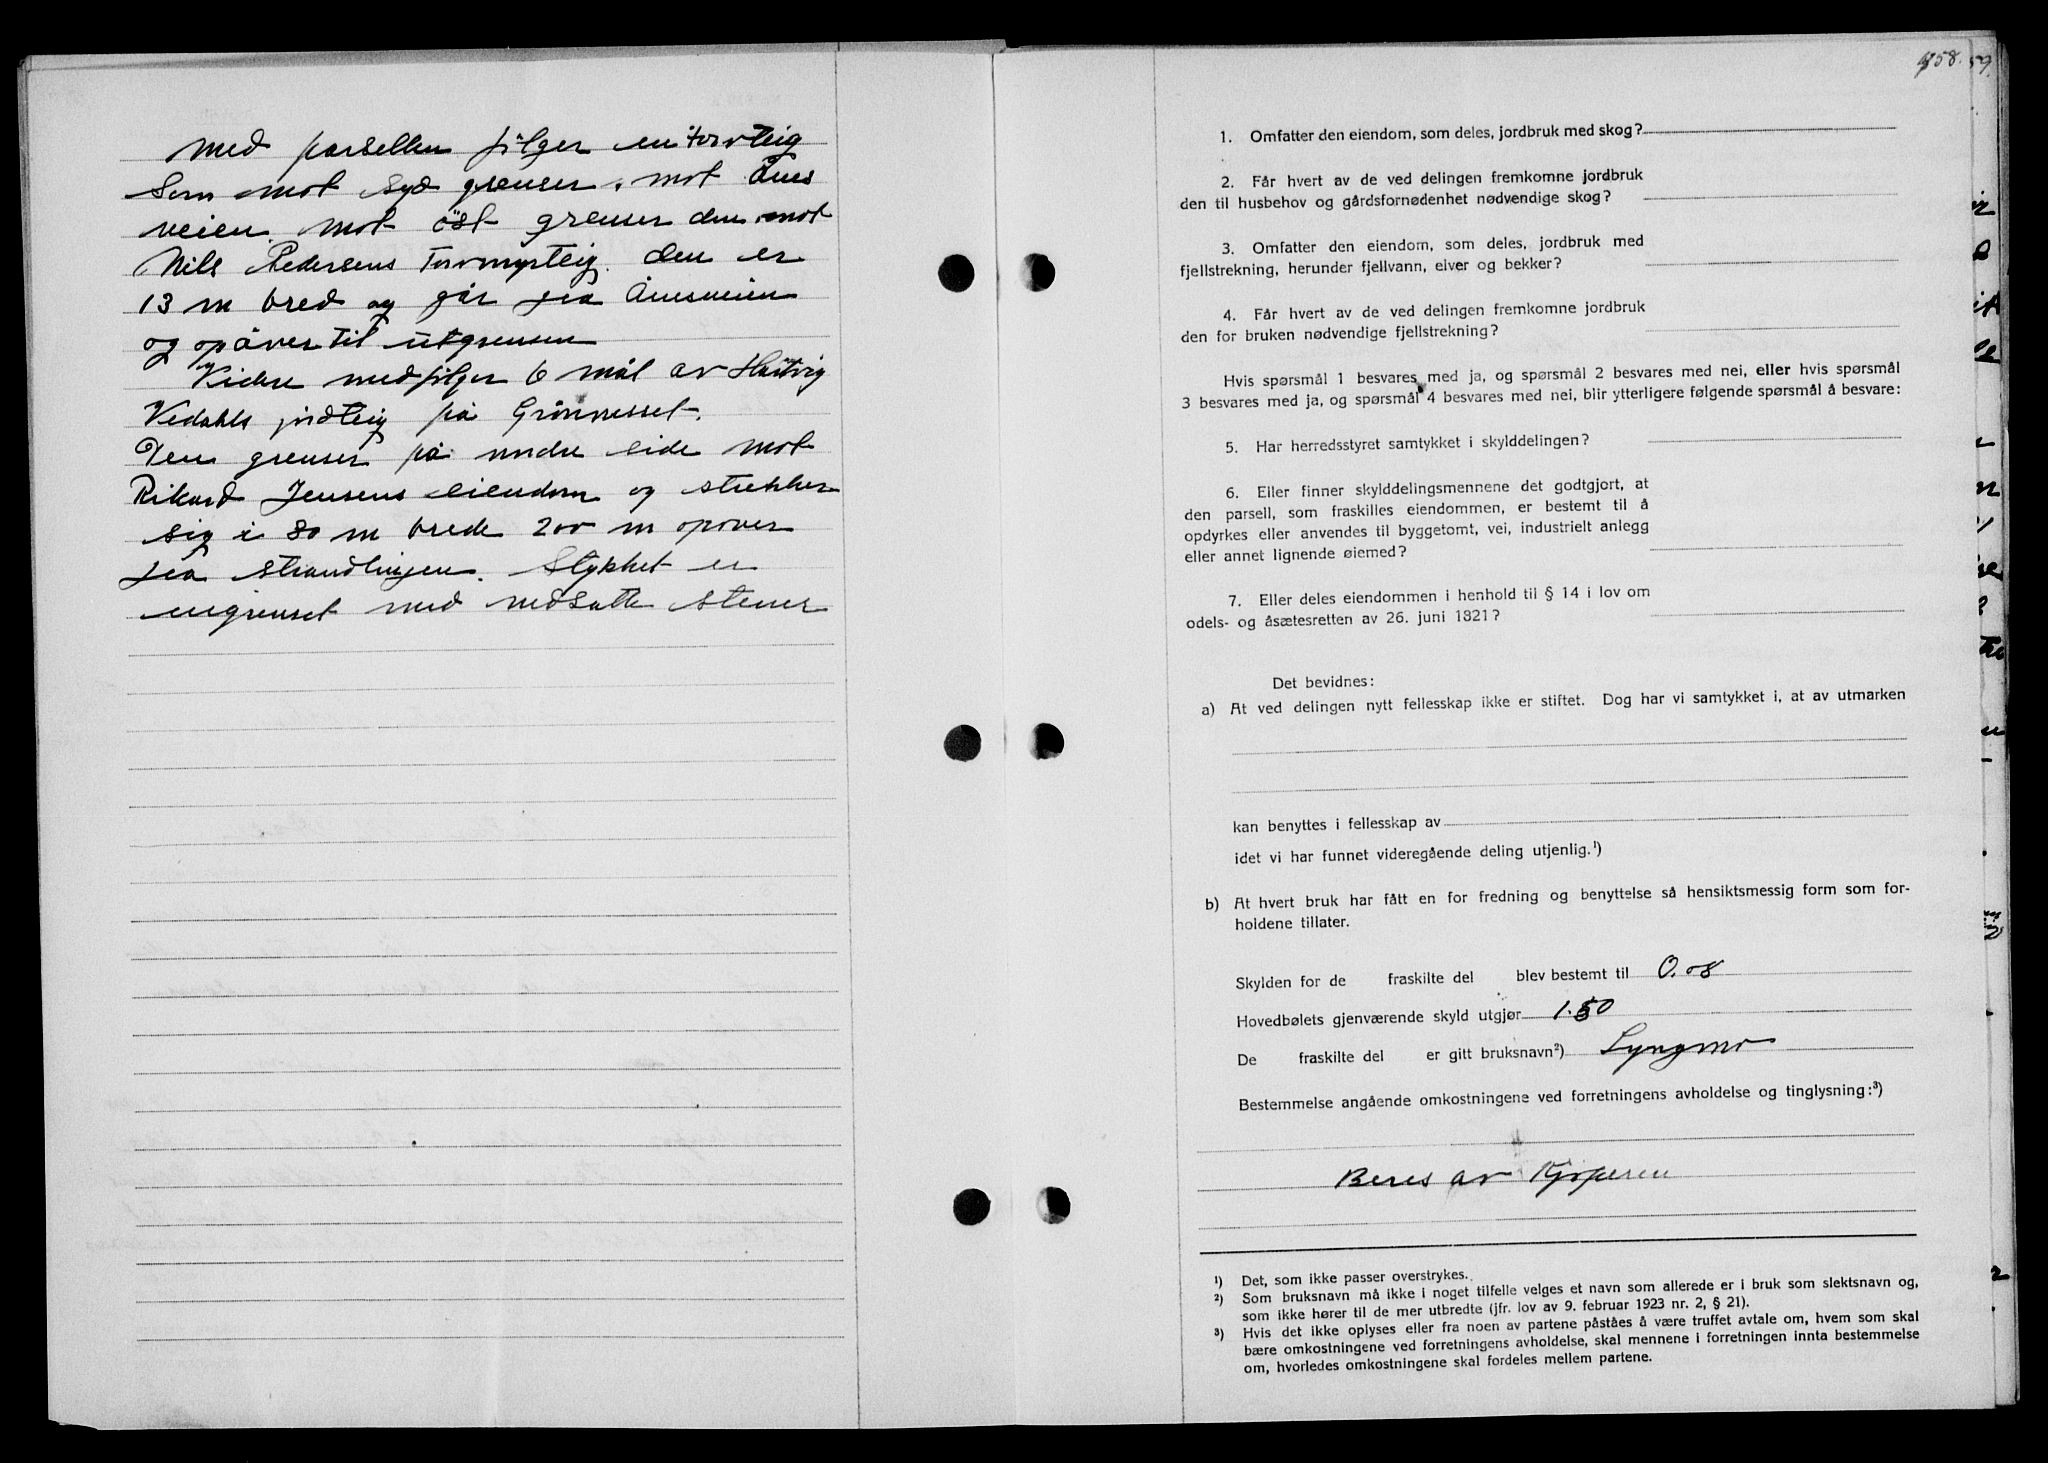 med parsellen følger en torvteig
som mot syd grenser mot Ånes
veien. mot öst grenser den mot
Nils Pedersens Torvmyrteig. den er
13 m bred og går fra Ånesveien
og opåver til utgrensen
Videre medfølger 6 mål av Hartvig
Vedahls jordteig på Grönnesset.
Den grenser på nedre side mot
Rikard Jensens eiendom og strekker
sig i 30 m brede 200 m opover
fra strandlinjen. Stykket er
inngrenset med nedsatte stener
158. 59.
1. Omfatter den eiendom, som deles, jordbruk med skog?
2. Får hvert av de ved delingen fremkomne jordbruk
den til husbehov og gårdsfornødenhet nødvendige skog?
3. Omfatter den eiendom, som deles, jordbruk med
fjellstrekning, herunder fjellvann, elver og bekker?
4. Får hvert av de ved delingen fremkomne jordbruk
den for bruken nødvendige fjellstrekning?
Hvis spørsmål 1 besvares med ja, og spørsmål 2 besvares med nei, eller hvis spørsmål
3 besvares med ja, og spørsmål 4 besvares med nei, blir ytterligere følgende spørsmål å besvare:
5. Har herredsstyret samtykket i skylddelingen?
6. Eller finner skylddelingsmennene det godtgjort, at
den parsell, som fraskilles eiendommen, er bestemt til å
opdyrkes eller anvendes til byggetomt, vei, industrielt anlegg
eller annet lignende øiemed?
7. Eller deles eiendommen i henhold til § 14 i lov om
odels- og åsætesretten av 26. juni 1821?
Det bevidnes:
a) At ved delingen nytt fellesskap ikke er stiftet. Dog har vi samtykket i, at av utmarken
kan benyttes i fellesskap av
idet vi har funnet videregående deling utjenlig.¹)
b) At hvert bruk har fått en for fredning og benyttelse så hensiktsmessig form som for-
holdene tillater.
Skylden for de fraskilte del blev bestemt til 0.08
Hovedbølets gjenværende skyld utgjør 1.50
De fraskilte del er gitt bruksnavn²) Lyngmo
Bestemmelse angående omkostningene ved forretningens avholdelse og tinglysning:³)
Beres av Kjøperen
¹) Det, som ikke passer overstrykes.
²) Som bruksnavn må ikke i noget tilfelle velges et navn som allerede er i bruk som slektsnavn og,
som ikke hører til de mer utbredte (jfr. lov av 9. februar 1923 nr. 2, § 21).
³) Hvis det ikke oplyses eller fra noen av partene påståes å være truffet avtale om, hvem som skal
bære omkostningene ved forretningens avholdelse, skal mennene i forretningen innta bestemmelse
om, hvorledes omkostningene skal fordeles mellem partene.